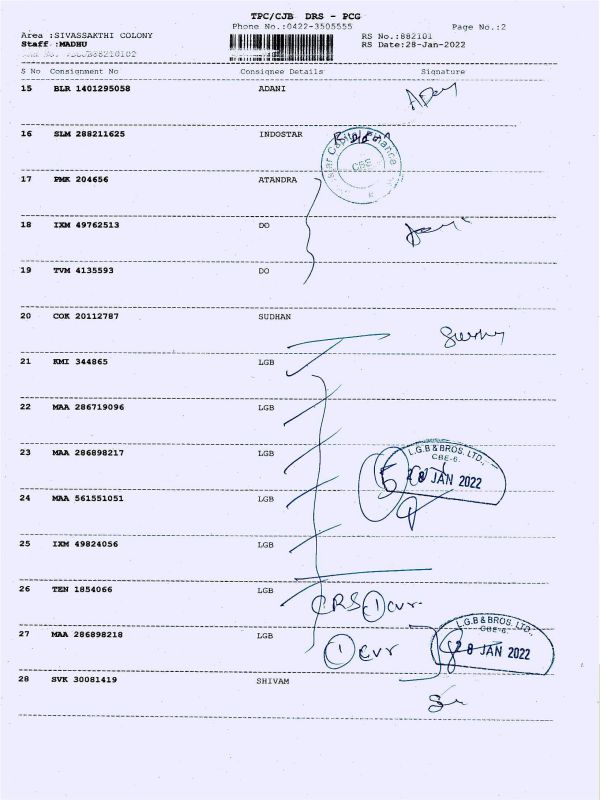 TPC/CJB DRS - PCG
Phone No.:0422-3505555
Page No.:2
Area :SIVASSAKTHI COLONY
RS No.:882101
Staff :MADHU
RS Date:28-Jan-2022
S No Consignment No Consignee Details Signature
15 BLR 1401295058 ADANI
16 SLM 288211625 INDOSTAR
star Capital Finance
CBE
17 PMK 204656 ATANDRA
18 IXM 49762513 DO
19 TVM 4135593 DO
20 COK 20112787 SUDHAN
21 KMI 344865 LGB
22 MAA 286719096 LGB
23 MAA 286898217 LGB
L.G.B & BROS. LTD.,
CBE-6.
5
28 JAN 2022
24 MAA 561551051 LGB
25 IXM 49824056 LGB
26 TEN 1854066 LGB
CRS 1 cvr.
27 MAA 286898218 LGB
1 cvr
L.G.B & BROS. LTD.,
CBE-6.
28 JAN 2022
28 SVK 30081419 SHIVAM